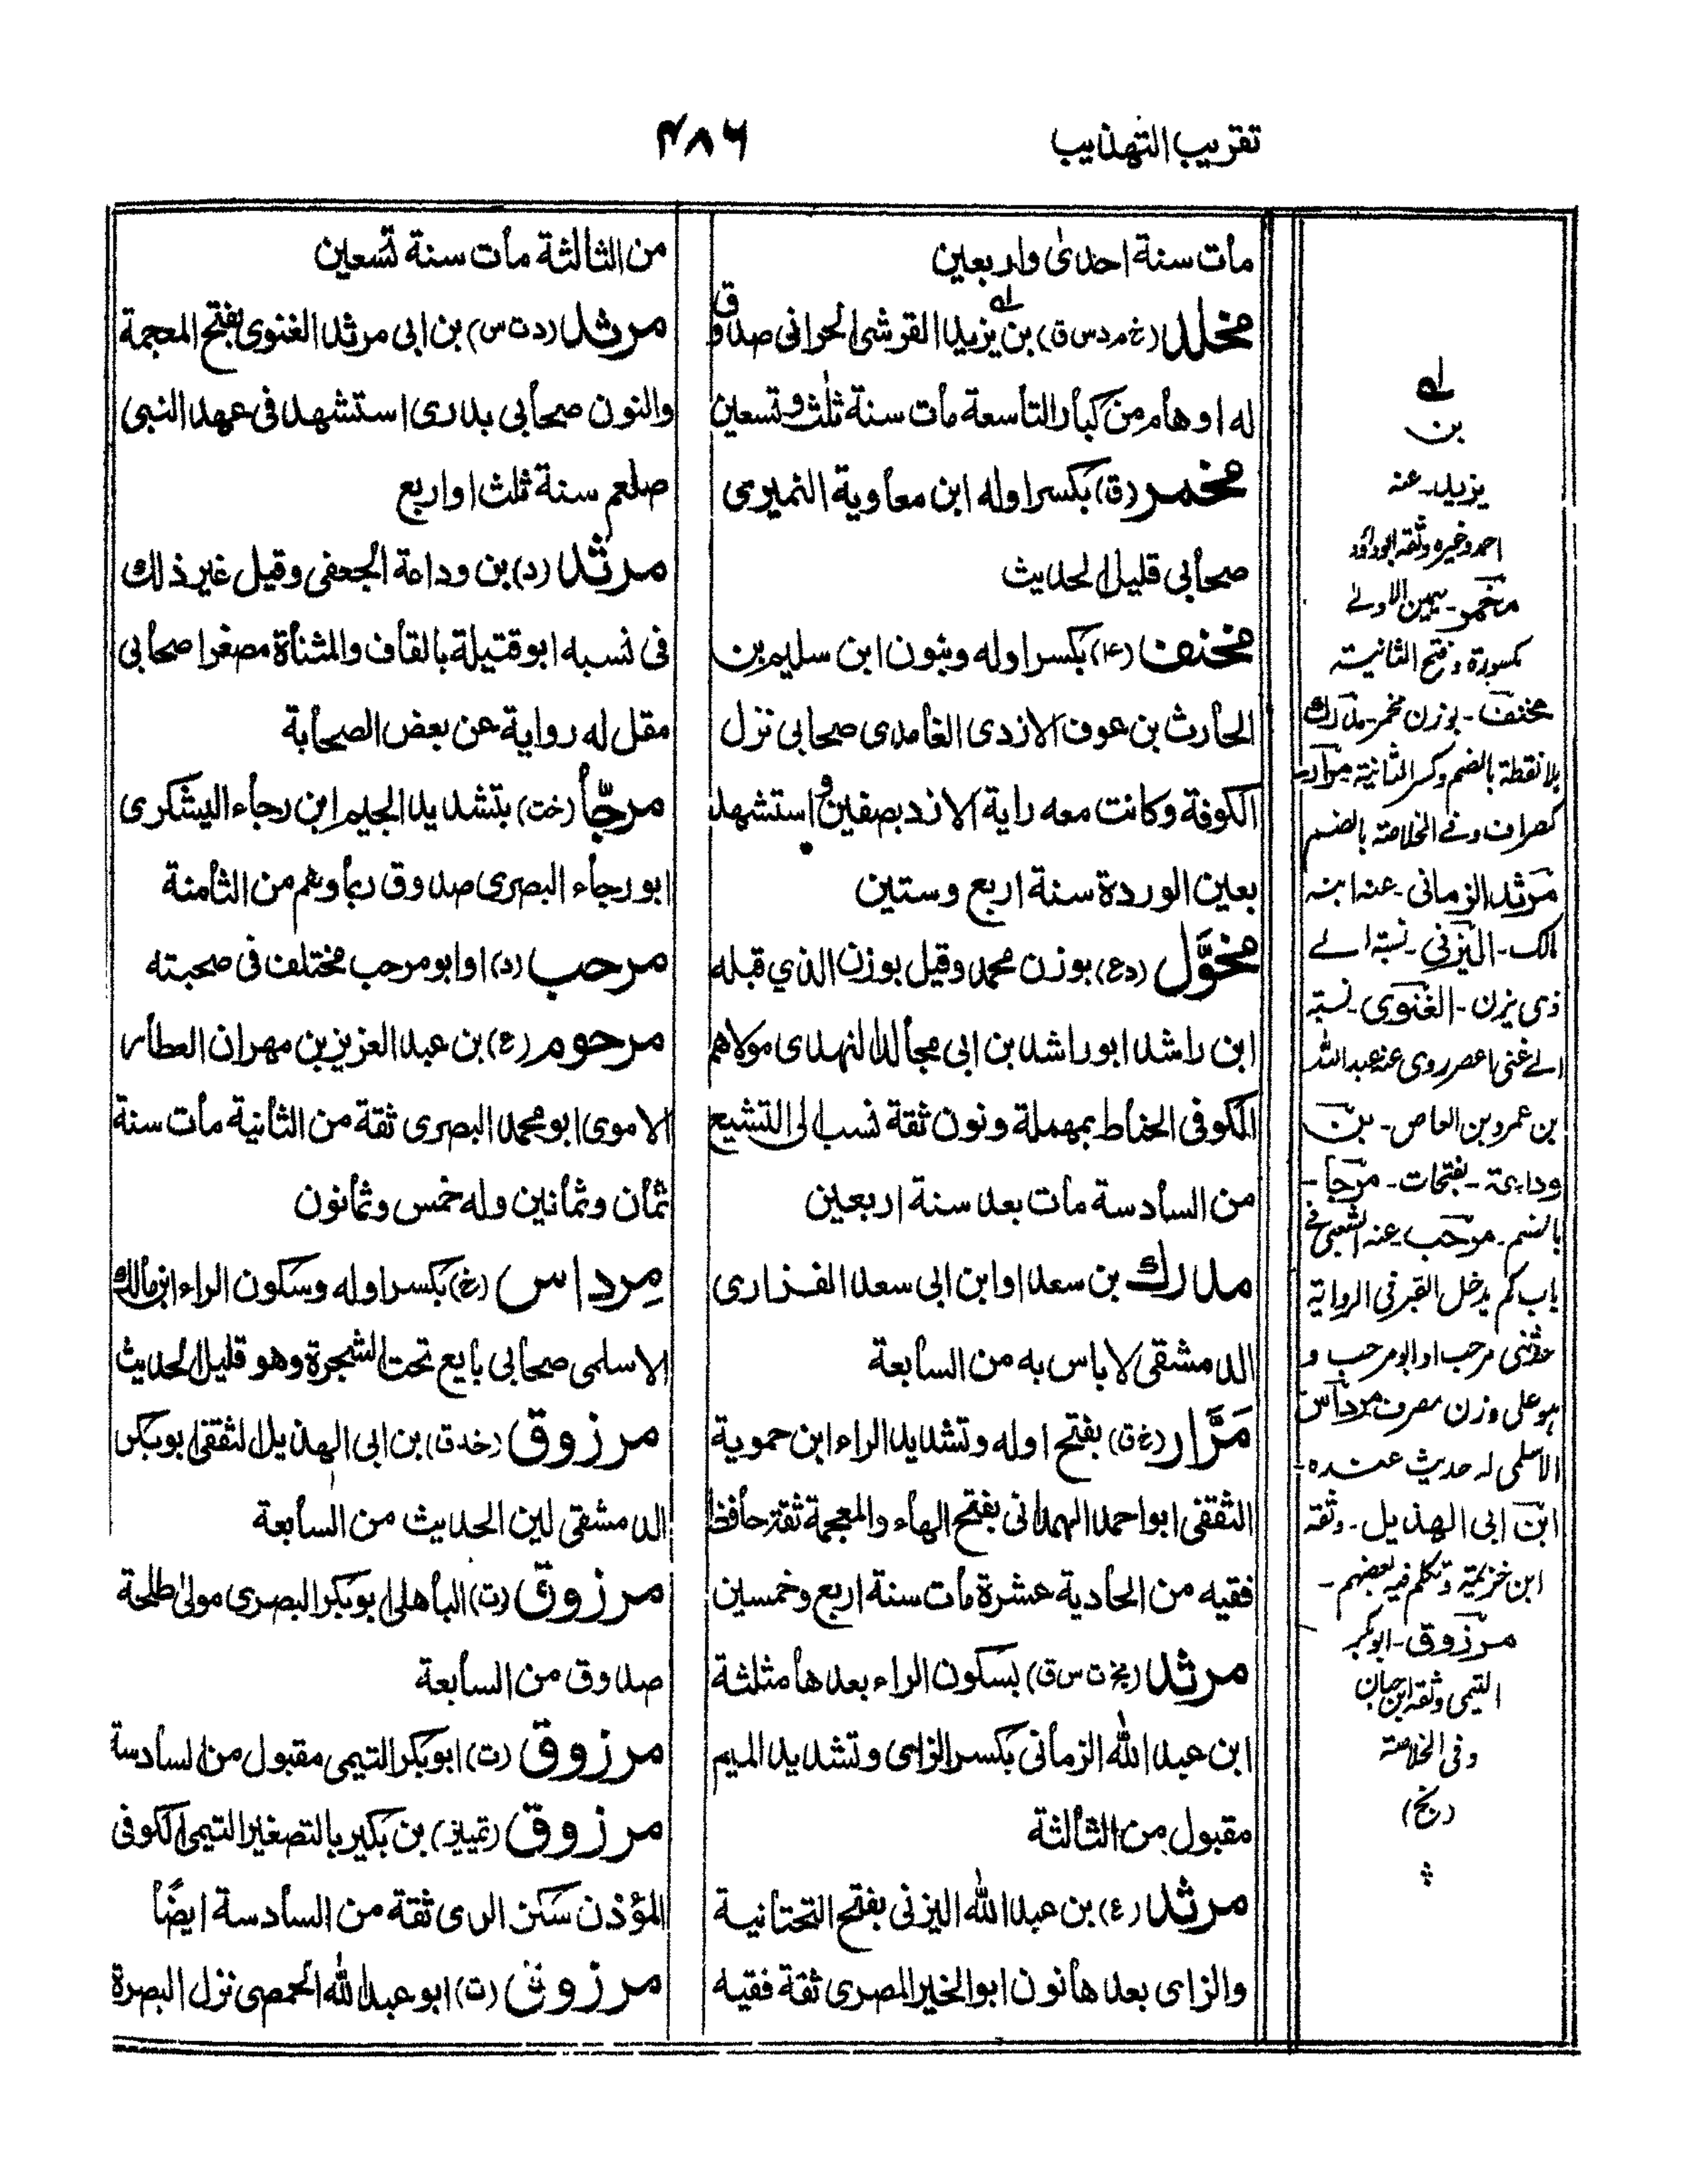 تقريب التهذيب
۴۸۶
مات سنة احدى واربعين
مخلد (خ م د س ق) بن يزيد القرشى الحرانى صدوق
له اوهام من كبار التاسعة مات سنة ثلث وتسعين
مخمر (ق) بكسر اوله ابن معاوية النميرى
صحابى قليل الحديث
مخنف (۴) بكسر اوله وبنون ابن سليم بن
الحارث بن عوف الازدى الغامدى صحابى نزل
الكوفة وكانت معه راية الازد بصفين واستشهد
بعين الوردة سنة اربع وستين
مخوَّل (دع) بوزن محمد وقيل بوزن الذي قبله
ابن راشد ابو راشد بن ابى مجالد النهدى مولاهم
الكوفى الحناط بمهملة ونون ثقة نسب الى التشيع
من السادسة مات بعد سنة اربعين
مدرك بن سعد او ابن ابى سعد الفزارى
الدمشقى لا باس به من السابعة
مَرَّار (خ ق) بفتح اوله وتشديد الراء ابن حموية
الثقفى ابو احمد الهمدانى بفتح الهاء والمعجمة ثقة حافظ
فقيه من الحادية عشرة مات سنة اربع وخمسين
مرثد (بخ ت س ق) بسكون الراء بعدها مثلثة
ابن عبد الله الزمانى بكسر الزاى وتشديد الميم
مقبول من الثالثة
مرثد (ع) بن عبد الله اليزنى بفتح التحتانية
والزاى بعدها نون ابو الخير المصرى ثقة فقيه
من الثالثة مات سنة تسعين
مرثد (د ت س) بن ابى مرثد الغنوى بفتح المعجمة
والنون صحابى بدرى استشهد فى عهد النبى
صلعم سنة ثلث او اربع
مرثد (د) بن وداعة الجعفى وقيل غير ذلك
فى نسبه ابو قتيلة بالقاف والمثناة مصغرا صحابى
مقل له رواية عن بعض الصحابة
مرجّأ (خت) بتشديد الجيم ابن رجاء اليشكرى
ابو رجاء البصرى صدوق ربما وهم من الثامنة
مرحب (د) او ابو مرحب مختلف فى صحبته
مرحوم (ع) بن عبد العزيز بن مهران العطار
الاموى ابو محمد البصرى ثقة من الثانية مات سنة
ثمان وثمانين وله خمس وثمانون
مِرداس (خ) بكسر اوله وسكون الراء ابن مالك
الاسلمى صحابى بايع تحت الشجرة وهو قليل الحديث
مرزوق (خد ق) بن ابى الهذيل الثقفى ابو بكر
الدمشقى لين الحديث من السابعة
مرزوق (ت) الباهلى ابو بكر البصرى مولى طلحة
صدوق من السابعة
مرزوق (ت) ابو بكر التيمى مقبول من السادسة
مرزوق (تمييز) بن بكير بالتصغير التيمى الكوفى
المؤذن سكن الرى ثقة من السادسة ايضًا
مرزوق (ت) ابو عبد الله الحمصى نزل البصرة
له
بن
يزيد۔ عنه
احمد وغيره وثقه ابوداود
مخمر۔ بميمين الاولے
مكسورة وفتح الثانية
مخنف۔ بوزن مخمر۔ مدرك
بلا نقطة بالضم وكسر الثانية مرار
كصراف وفے الخلاصة بالضم
مرثد الزمانى۔ عنه ابنه
مالك۔ اليزنى۔ نسبة الے
ذى يزن۔ الغنوى۔ نسبة
الے غنى روى عنه عبدالله
بن عمرو بن العاص۔ بن
وداعة۔ بفتحات۔ مرجا۔
بالضم۔ مرحب عنه الشعبى فے
باب كم يدخل القبر فى الرواية
حدثنى مرحب او ابو مرحب و
هو على وزن مصرف مرداس
الاسلمى له حديث عنده۔
ابن ابى الهذيل۔ وثقه
ابن خزيمة وتكلم فيه بعضهم۔
مرزوق۔ ابوبكر
التيمى وثقه ابن حبان
وفى الخلاصة
(بخ)